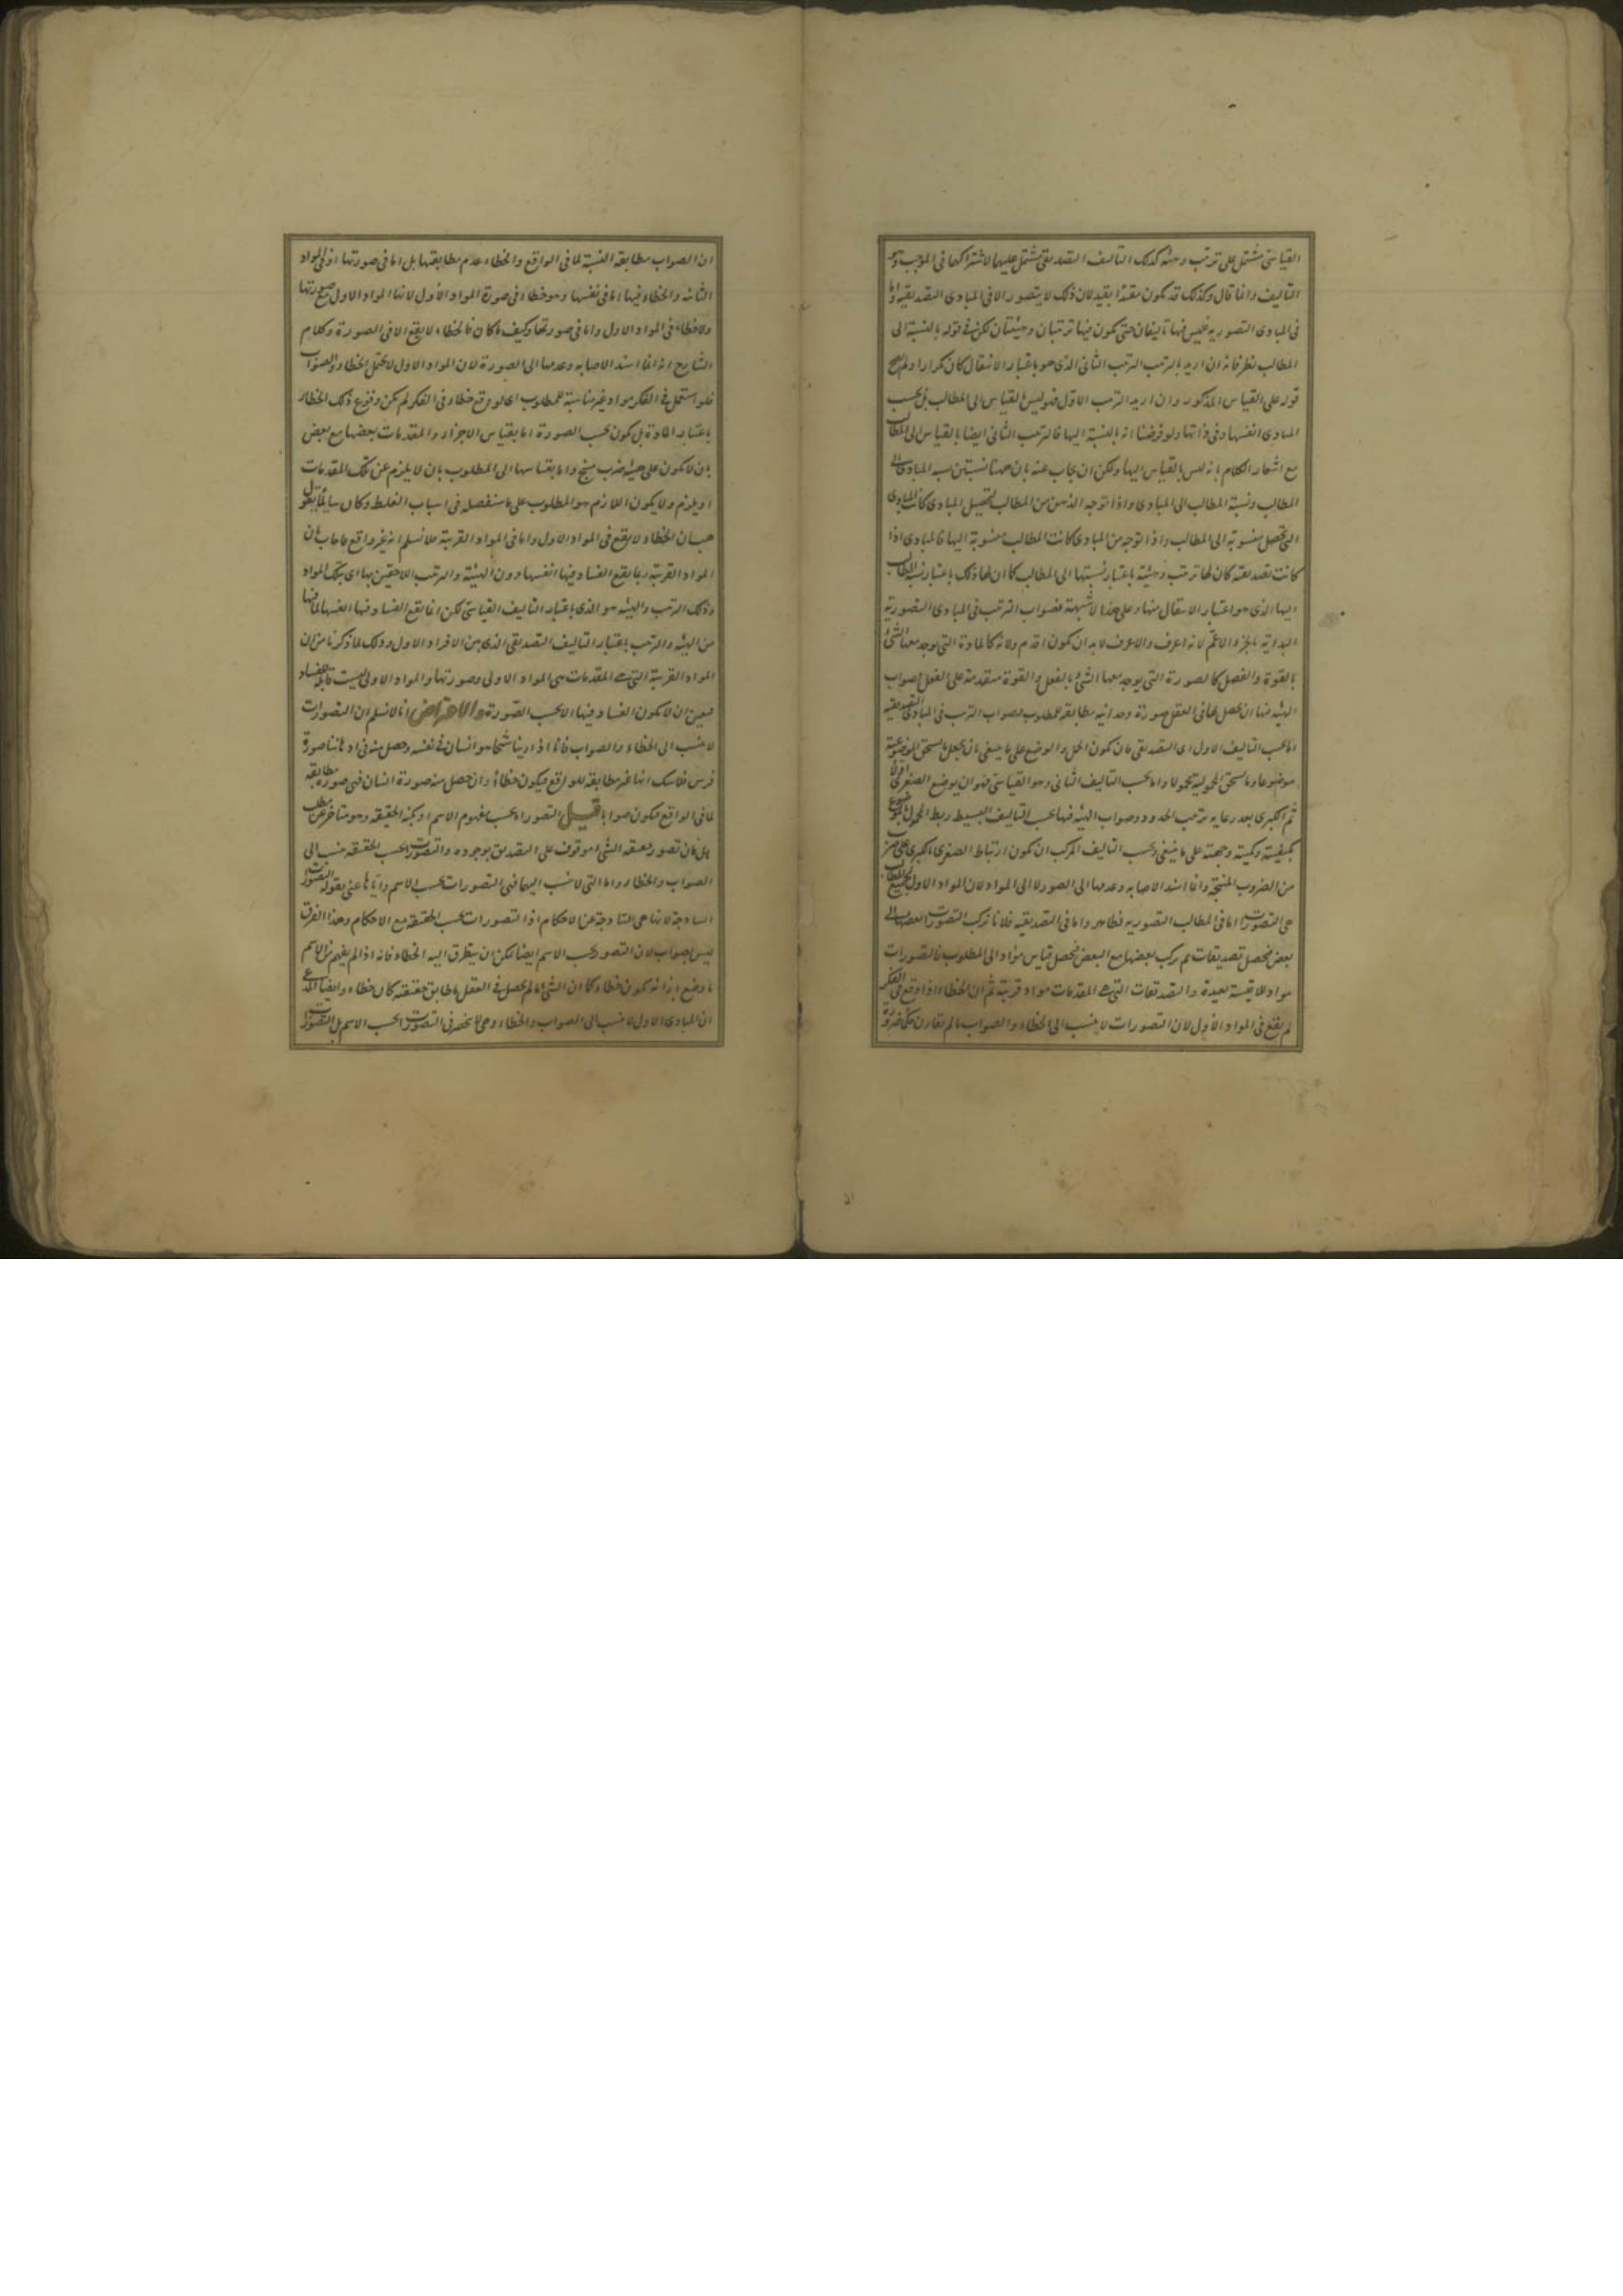 القياسى مشتمل على ترتيب وهيئة كذلك التأليف التصديقى مشتمل عليهما لاشتراكهما فى الموجب وهو
التأليف وانما قال وكذلك قد يكون مقيدا بقيد لان ذلك لا يتصور الا فى المبادى التصديقية واما
فى المبادى التصورية فليس فيها تأليفان حتى يكون فيها ترتيبان وهيئتان لكن فى قوله بالنسبة الى
المطالب نظر فانه ان اريد بالترتيب الترتيب الثانى الذى هو باعتبار الانتقال كان تكرارا ولم يصح
قوله على القياس المذكور وان اريد الترتيب الاول فهو ليس بالقياس الى المطالب بل بحسب
المبادى انفسها وفى ذاتها ولو فرضنا انه بالنسبة اليها فالترتيب الثانى ايضا بالقياس الى المطالب
مع اشعار الكلام بانه ليس بالقياس اليها ويمكن ان يجاب عنه بان ههنا نسبتين نسبة المبادى الى
المطالب ونسبة المطالب الى المبادى واذا توجه الذهن من المطالب لتحصيل المبادى كانت المبادى
التى تحصل منسوبة الى المطالب واذا توجه من المبادى كانت المطالب منسوبة اليها فالمبادى اذا
كانت تصديقية كان لها ترتيب وهيئة باعتبار نسبتها الى المطالب كما ان لها ذلك باعتبار نسبة المطالب
اليها الذى هو اعتبار الانتقال منها وعلى هذا لا شبهة فصواب الترتيب فى المبادى التصورية
البداية بالجزء الاعم لانه اعرف والاعرف لا بد ان يكون اقدم ولانه كالمادة التى يوجد معها الشئ
بالقوة والفصل كالصورة التى يوجد معها الشئ بالفعل والقوة متقدمة على الفعل وصواب
الهيئة فيها ان يحصل لها فى العقل صورة وحدانية مطابقة للمطلوب وصواب الترتيب فى المبادى التصديقية
اما بحسب التأليف الاول اى التصديقى فان يكون الحمل والوضع على ما ينبغى بان يجعل ما يستحق الموضوعية
موضوعا وما يستحق المحمولية محمولا واما بحسب التأليف الثانى وهو القياسى فهو ان يوضع الصغرى اولا
ثم الكبرى بعد رعاية ترتيب الحدود وصواب الهيئة فيها بحسب التأليف البسيط ربط المحمول بالموضوع
بكيفيته وكميته وجهته على ما ينبغى وبحسب التأليف المركب ان يكون ارتباط الصغرى بالكبرى على ضرب
من الضروب المنتجة وانما اسند الاصابة وعدمها الى الصورة لا الى المواد لان المواد الاول لجميع المطالب
هى التصورات اما فى المطالب التصورية فظاهر واما فى التصديقية فلانا نركب التصورات بعضها الى
بعض فيحصل تصديقات ثم نركب بعضها مع البعض فيحصل قياس مؤاد الى المطلوب فالتصورات
مواد للاقيسة بعيدة والتصديقات التى هى المقدمات مواد قريبة ثم ان الخطاء اذا وقع فى الفكر
لم يقع فى المواد الاول لان التصورات لا ينسب الى الخطاء والصواب ما لم تقارن حكما ضرورة
ان الصواب مطابقة النسبة لما فى الواقع والخطاء عدم مطابقتها بل اما فى صورتها او فى المواد
الثانية والخطاء فيها اما فى نفسها وهو خطاء فى صورة المواد الاول لانها المواد الاول مع صورتها
ولا خطاء فى المواد الاول واما فى صورتها وكيف ما كان فالخطاء لا يقع الا فى الصورة وكلام
الشارح انه انما اسند الاصابة وعدمها الى الصورة لان المواد الاول لا يحتمل الخطاء والصواب
فلو استعمل فى الفكر مواد غير مناسبة للمطلوب اى لو وقع خطاء فى الفكر لم يكن وقوع ذلك الخطاء
باعتبار المادة بل يكون بحسب الصورة اما بقياس الاجزاء والمقدمات بعضها مع بعض
بان لا يكون على هيئة ضرب منتج واما بقياسها الى المطلوب بان لا يلزم عن تلك المقدمات
او يلزم ولا يكون اللازم هو المطلوب على ما سنفصله فى اسباب الغلط وكان سائلا يقول
هب ان الخطاء لا يقع فى المواد الاول واما فى المواد القريبة فلا نسلم انه غير واقع فاجاب بان
المواد القريبة ربما يقع الفساد فيها انفسها دون الهيئة والترتيب اللاحقين بها اى بتلك المواد
وذلك الترتيب والهيئة هو الذى باعتبار التأليف القياسى لكن انما يقع الفساد فيها انفسها لما فيها
من الهيئة والترتيب باعتبار التأليف التصديقى الذى بين الافراد الاول وذلك لما ذكرنا من ان
المواد القريبة التى هى المقدمات هى المواد الاولى وصورتها والمواد الاولى ليست قابلة للفساد
فتعين ان لا يكون الفساد فيها الا بحسب الصورة والاعتراض انا لا نسلم ان التصورات
لا ينسب الى الخطاء والصواب فانا اذا رأينا شبحا هو انسان فى نفسه وحصل منه فى اذهاننا صورة
فرس فلا شك انها غير مطابقة للواقع فيكون خطاء وان حصل منه صورة انسان فهى صورة مطابقة
لما فى الواقع فيكون صوابا قيل التصور اما بحسب مفهوم الاسم او بكنه الحقيقة وهو متأخر عن مطلب
هل فان تصور حقيقة الشئ موقوف على التصديق بوجوده والتصورات بحسب الحقيقة ينسب الى
الصواب والخطاء واما التى لا ينسب اليهما فهى التصورات بحسب الاسم واياها عنى بقوله التصورات
الساذجة لانها هى الساذجة عن الاحكام اذ التصورات بحسب الحقيقة مع الاحكام وهذا الفرق
ليس بصواب لان التصور بحسب الاسم ايضا يمكن ان يتطرق اليه الخطاء فانه اذا لم يفهم من الاسم
ما وضع بازائه يكون خطاء كما ان الشئ ما لم يحصل فى العقل ما طابق حقيقته كان خطاء وايضا المدعى
ان المبادى الاول لا ينسب الى الصواب والخطاء وهى لا ينحصر فى التصورات بحسب الاسم بل التصورات